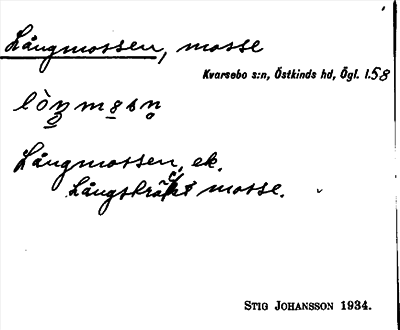 Långmossen, mosse
Kvarsebo s:n, Östkinds hd, Ögl. l.58
Långmossen, ek.
mosse.
STIG JOHANSSON 1934.